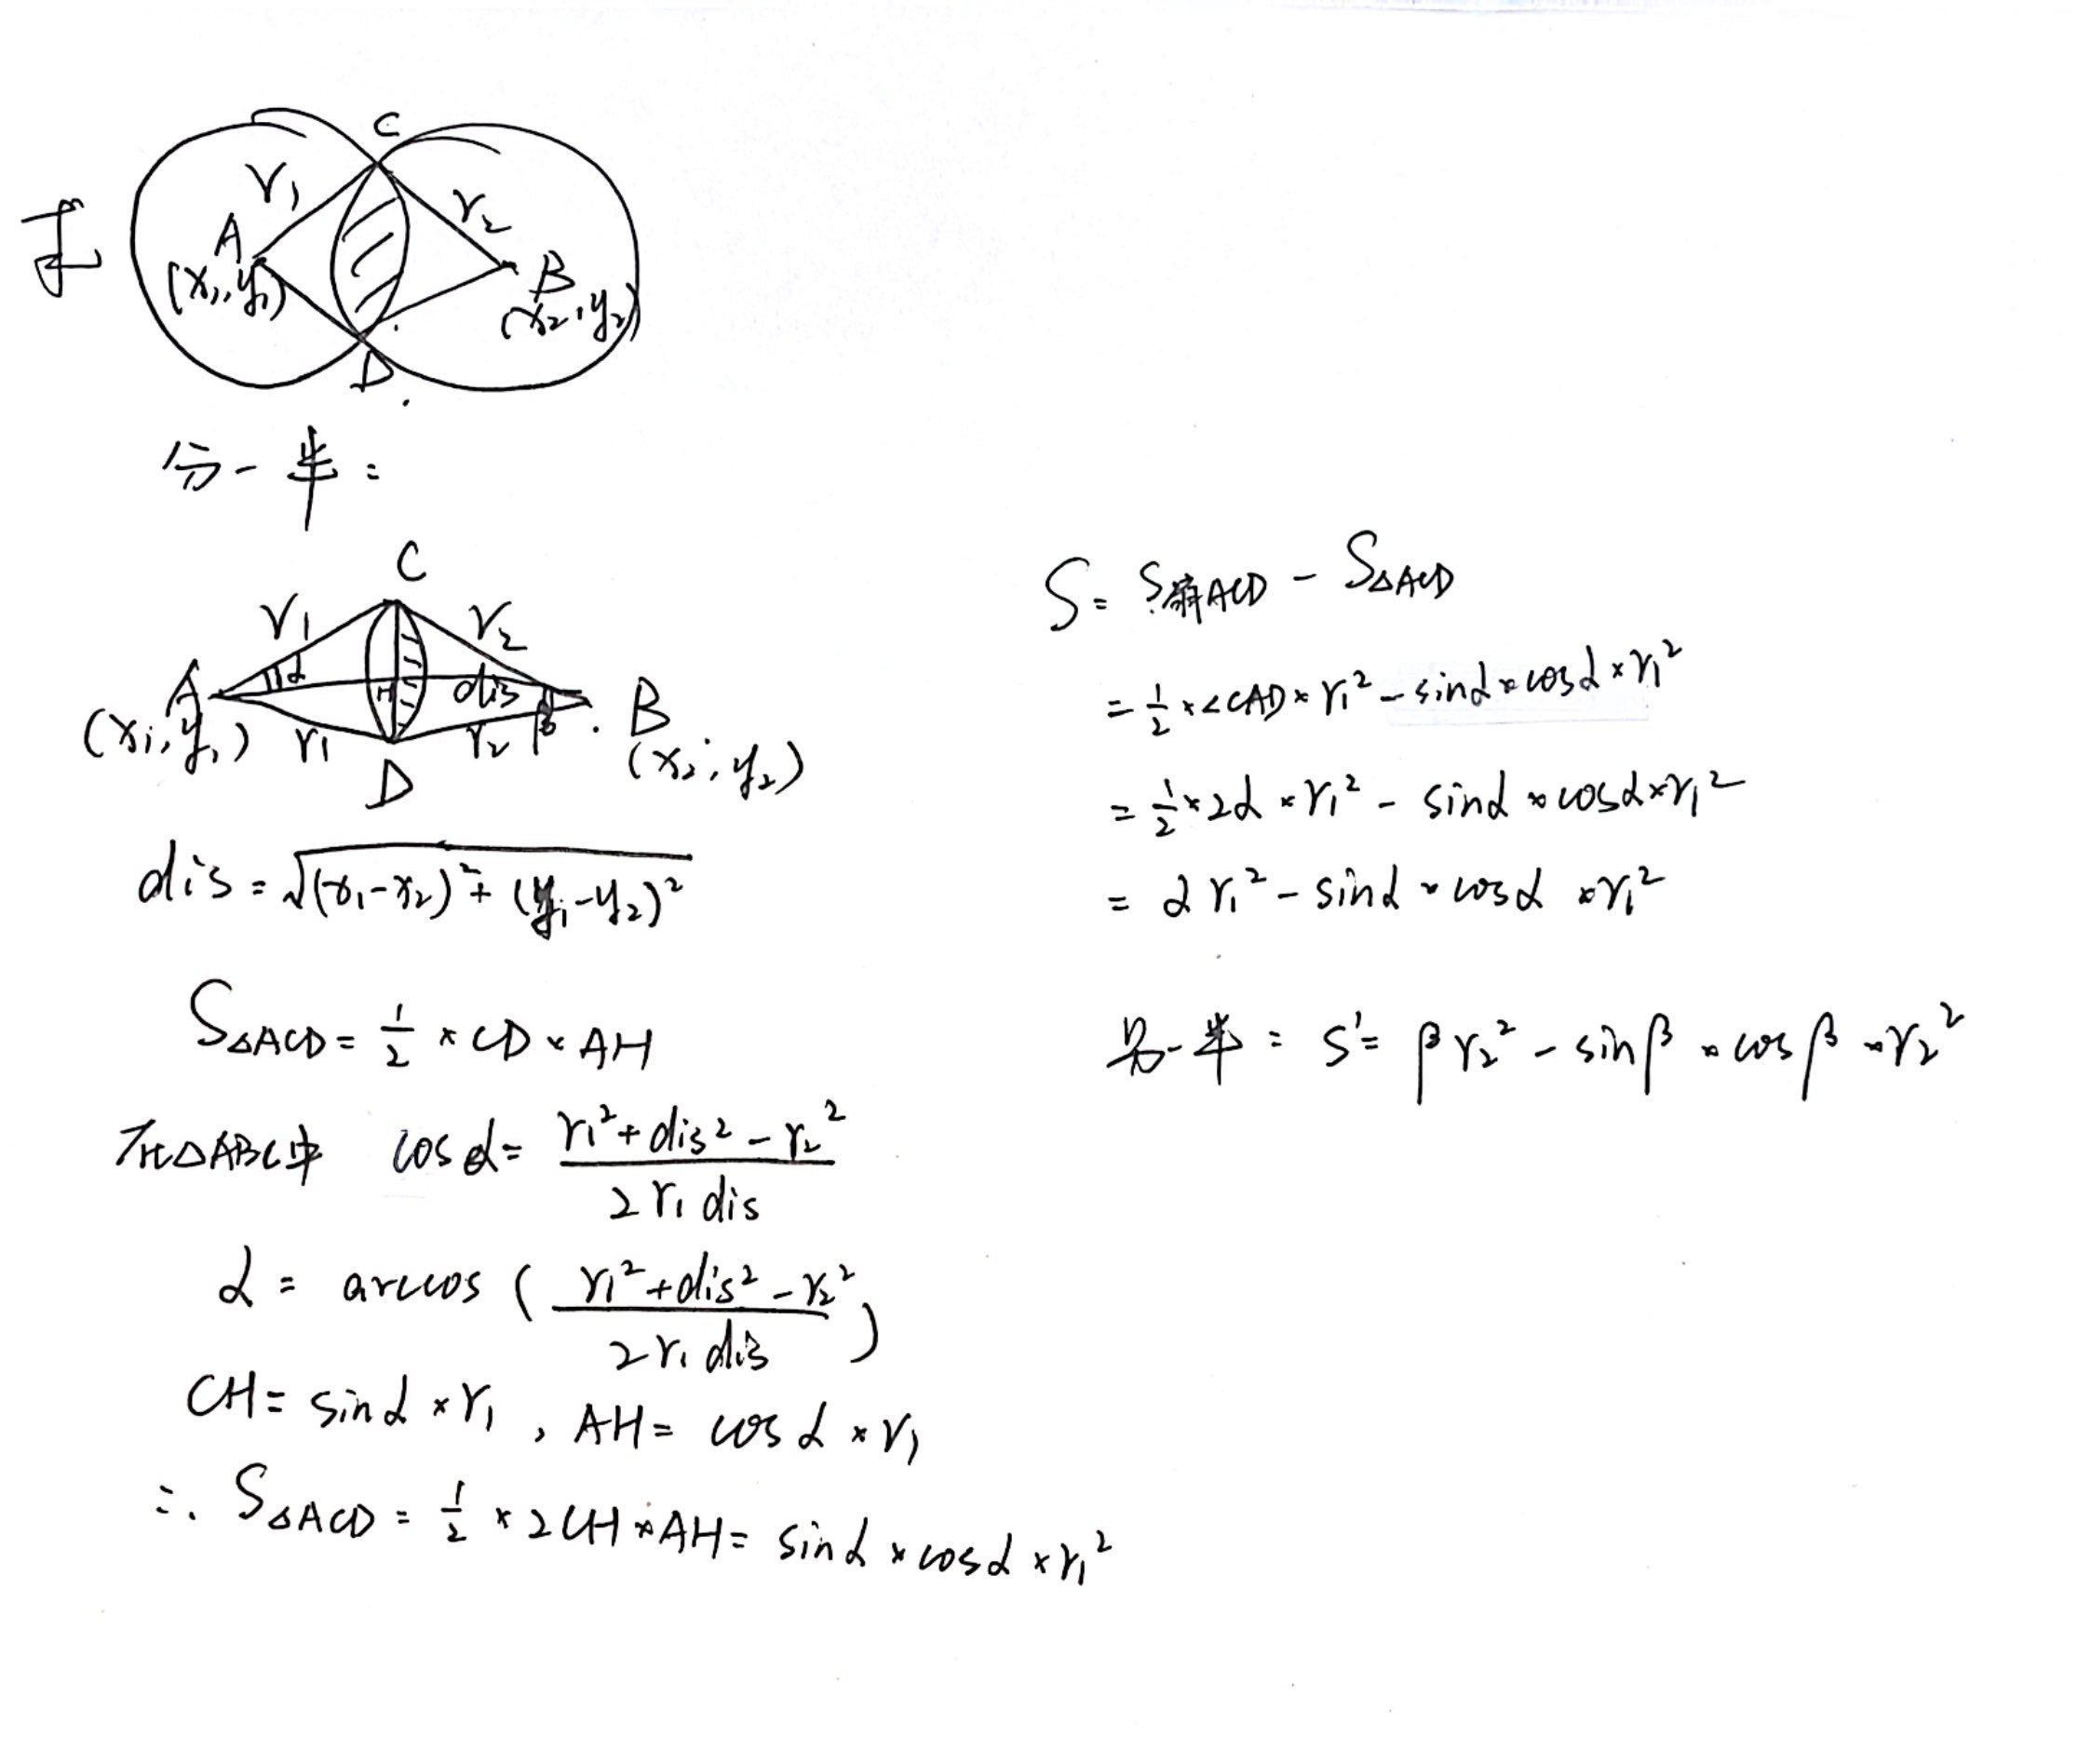 求
C
r₁
r₂
A
(x₁,y₁)
B
(x₂,y₂)
D
分一半:
C
r₁
r₂
α
A
H
dis
B
(x₁,y₁)
r₁
r₂
β
(x₂,y₂)
D
dis=√((x₁-x₂)²+(y₁-y₂)²)
S△ACD=1/2×CD×AH
在△ABC中 cosα=(r₁²+dis²-r₂²)/(2r₁dis)
α=arccos((r₁²+dis²-r₂²)/(2r₁dis))
CH=sinα×r₁, AH=cosα×r₁
∴S△ACD=1/2×2CH×AH=sinα×cosα×r₁²
S=S扇ACD-S△ACD
=1/2×∠CAD×r₁²-sinα×cosα×r₁²
=1/2×2α×r₁²-sinα×cosα×r₁²
=αr₁²-sinα×cosα×r₁²
另一半:S'=βr₂²-sinβ×cosβ×r₂²